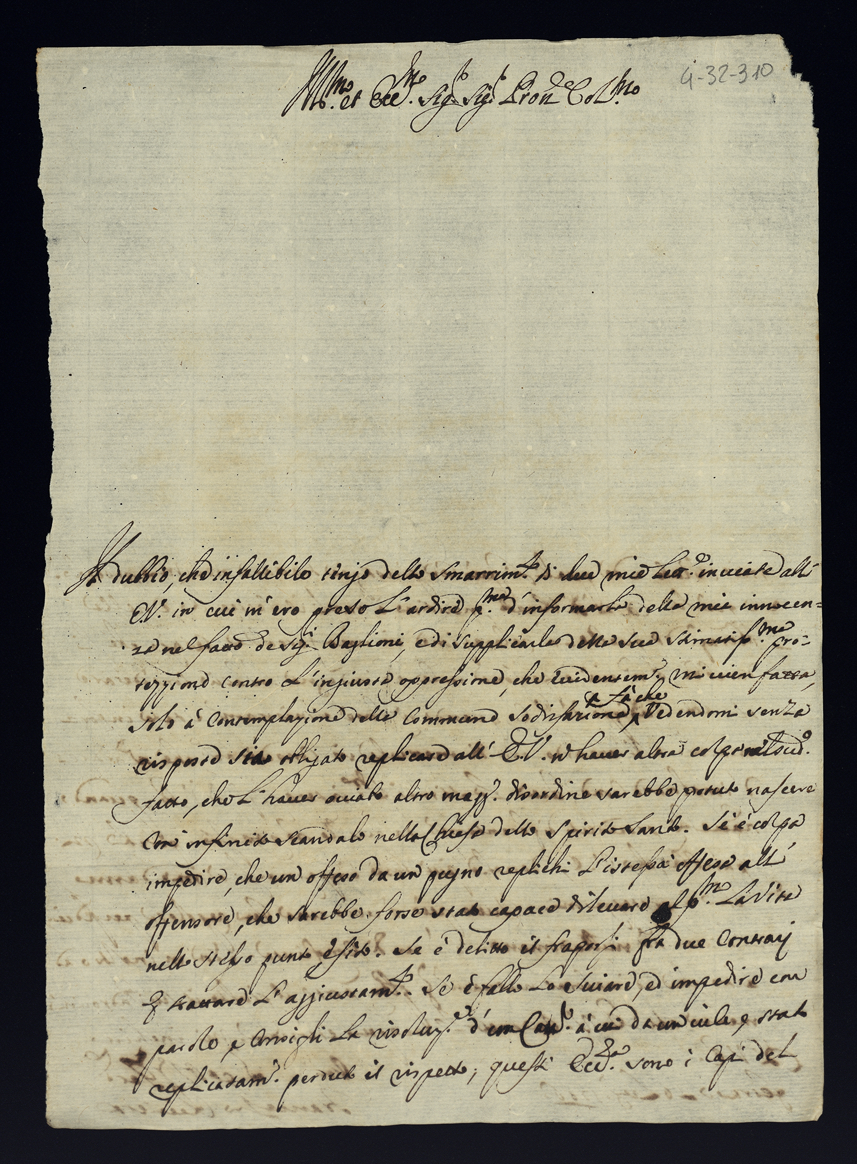 4-32-310
Ill.mo et Ecc.mo Sig.r Sig.r Pron.e Col.mo
Il dubbio, che infallibile tengo dello smarrim.to di due mie lett.e inviate all'
E.V. in cui m'ero preso l'ardire p.ma d'informarla della mia innocen=
za nel fatto de Sig.ri Baglioni, e di supplicarla della sua stimatiss.ma pro=
tezzione contro l'ingiusta oppressione, che evidentem.te mi vien fatta,
solo à contemplazione della commune sodisfazione, fà che vedendomi senza
risposta sia obligato replicare all' E.V. n haver altra colpa nel sud.o
fatto, che l'haver oviato altro magg.r disordine sarebbe potuto nascere
con infinito scandalo nella Chiesa dello Spirito Santo. Se è colpa
impedire, che un offeso da un pugno replichi l'istessa offesa all'
offensore, che sarebbe forse stato capace di levare al p.mo la vita
nello stesso punto, e sito. Se è delitto il fraporsi frà due contrarij
p trattare l'aggiustam.to. Se è fallo lo sviare, ed impedire con
parole, e consigli la risoluz.e d'un Cav.e à cui da un vile è stato
replicatam.te perduto il rispetto; questi Ecc.ze sono i capi del